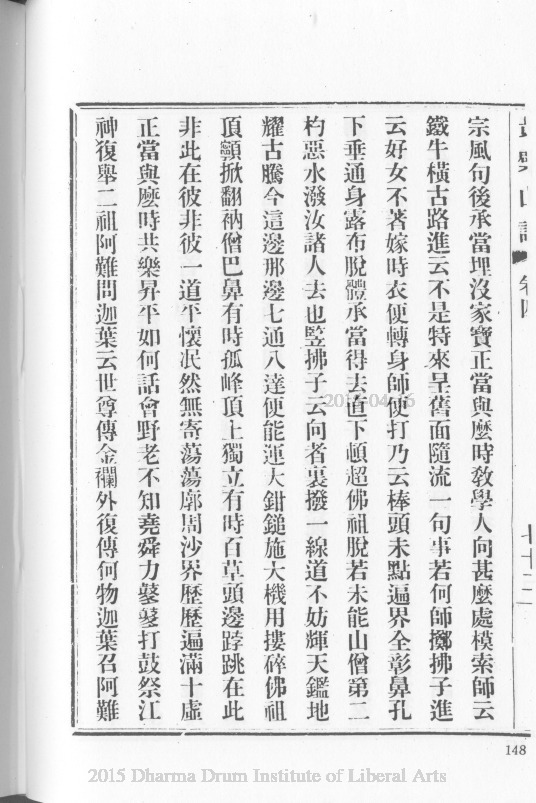 卷四
七十二
宗風句後承當埋沒家寶正當與麼時教學人向甚麼處模索師云
鐵牛橫古路進云不是特來呈舊面隨流一句事若何師擲拂子進
云好女不著嫁時衣便轉身師便打乃云棒頭未點遍界全彰鼻孔
下垂通身露布脫體承當得去直下頓超佛祖脫若未能山僧第二
杓惡水潑汝諸人去也豎拂子云向者裏撥一線道不妨輝天鑑地
耀古騰今這邊那邊七通八達便能運大鉗鎚施大機用摟碎佛祖
頂𩕳掀翻衲僧巴鼻有時孤峰頂上獨立有時百草頭邊𨁝跳在此
非此在彼非彼一道平懷泯然無寄蕩蕩廓周沙界歷歷遍滿十虛
正當與麼時共樂昇平如何話會野老不知堯舜力鼕鼕打鼓祭江
神復舉二祖阿難問迦葉云世尊傳金襴外復傳何物迦葉召阿難
148
2015 Dharma Drum Institute of Liberal Arts